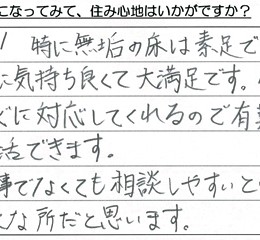 になってみて、住み心地はいかがですか？
特に無垢の床は素足で
に気持ち良くて大満足です。
ぐに対応してくれるので有
活できます。
事でなくても相談しやすいと
な所だと思います。